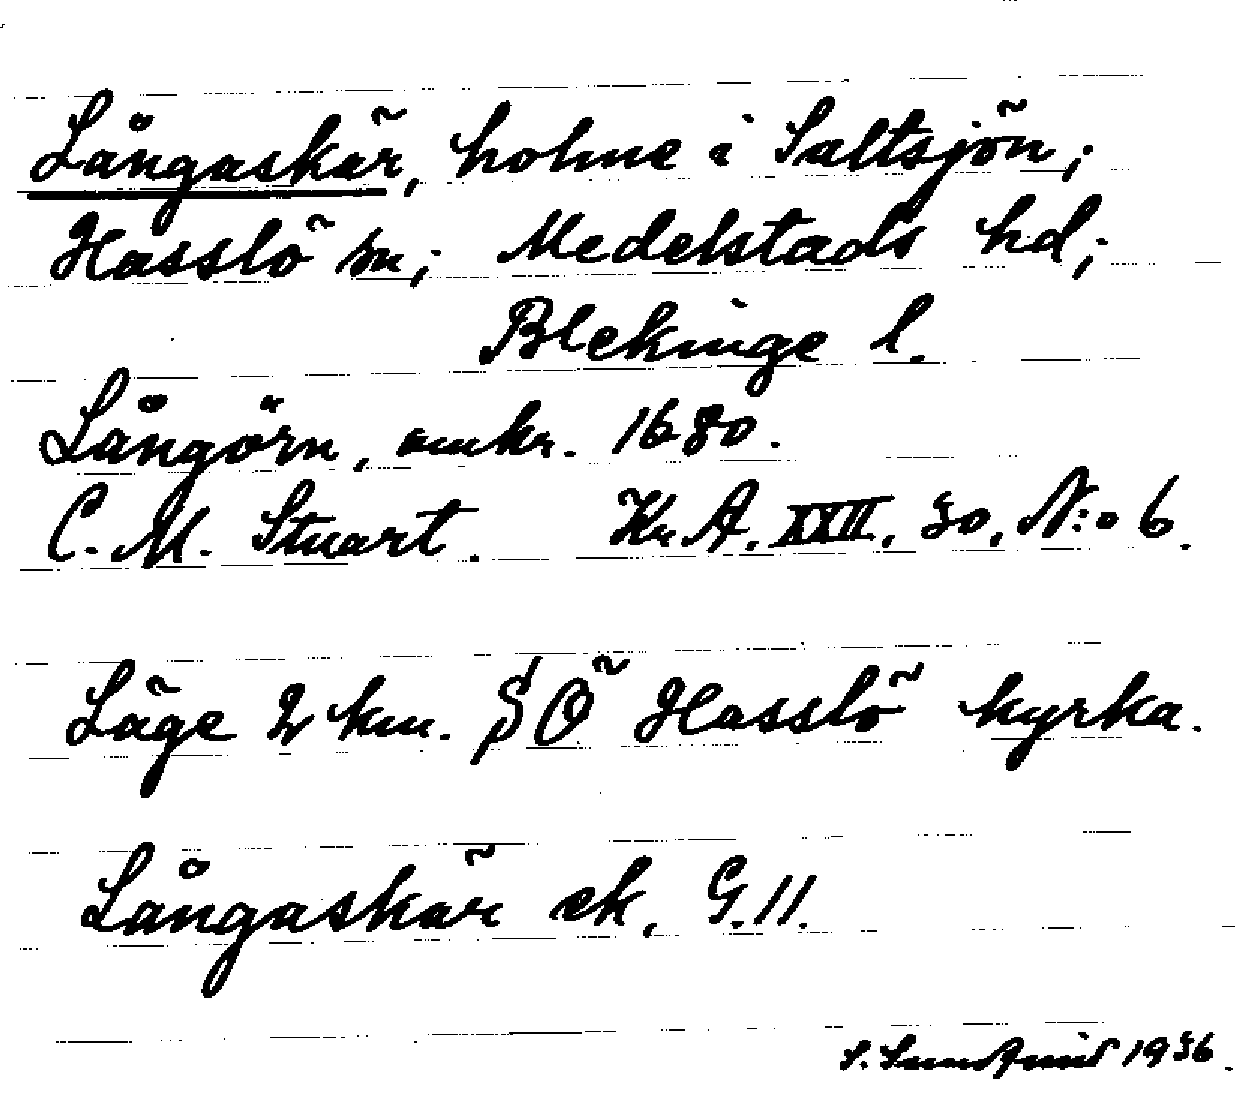 Långaskär, holme i Saltsjön;
Hasslö sn; Medelstads hd;
Blekinge l.
Långörn, omkr. 1680.
C. M. Stuart. Kr. A. XXII, 30, N:o 6.
Läge 2 km. SÖ Hasslö kyrka.
Långaskär ek. G. 11.
S. 1936.